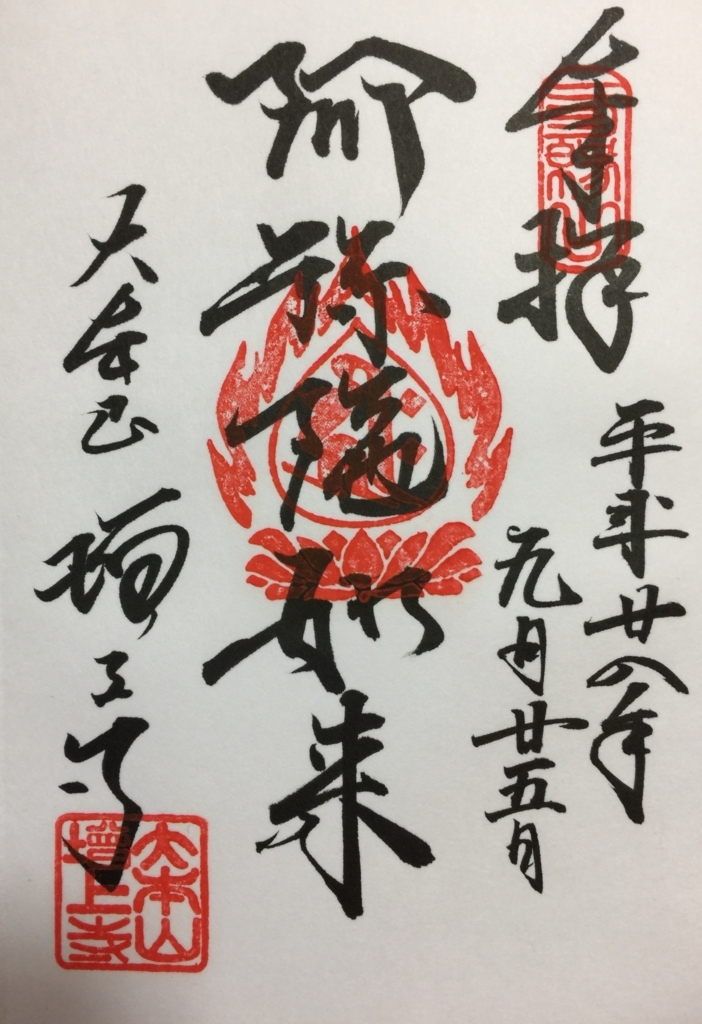 奉拝
三縁山
平成廿八年
九月廿五日
阿弥陀如来
大本山 増上寺
大本山
増上寺